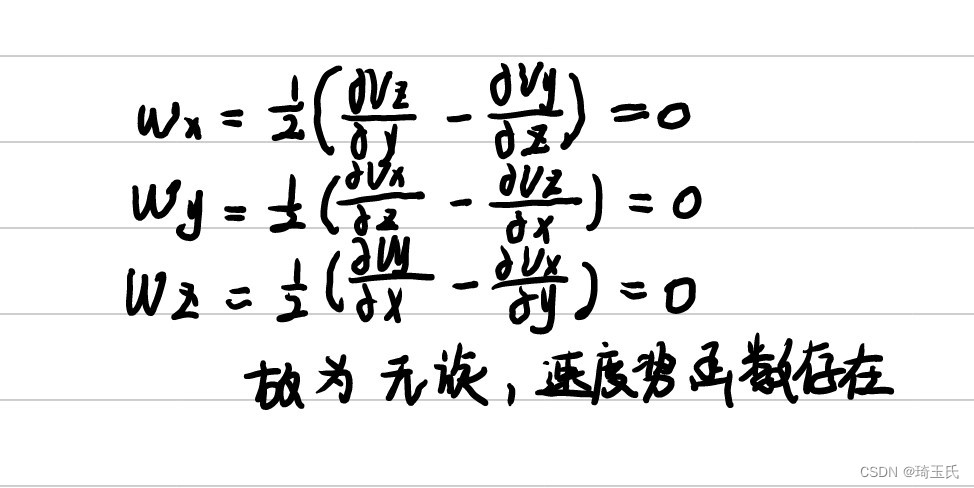 Wx = 1/2 (∂Vz/∂y - ∂Vy/∂z) = 0
Wy = 1/2 (∂Vx/∂z - ∂Vz/∂x) = 0
Wz = 1/2 (∂Vy/∂x - ∂Vx/∂y) = 0
故为无旋，速度势函数存在
CSDN @琦玉氏